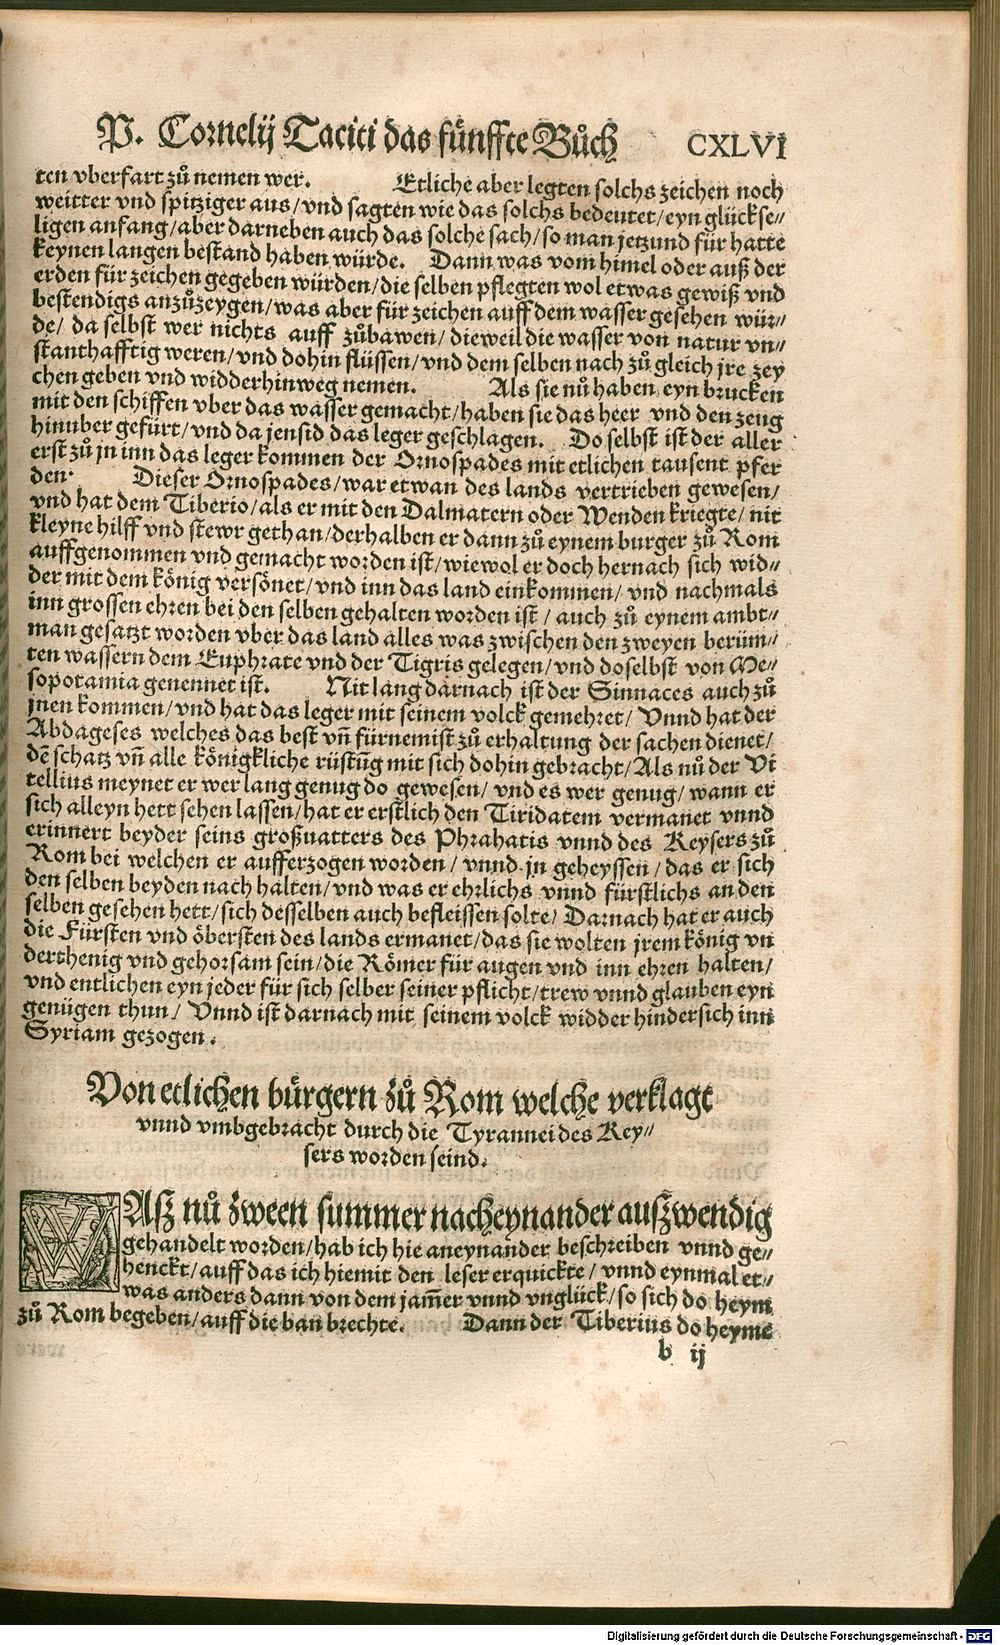 P. Cornelij Taciti das fünffte Bůch CXLVI
ten vberfart zů nemen wer. Etliche aber legten solchs zeichen noch
weitter vnd spitziger aus/vnd sagten wie das solchs bedeutet/eyn glückse⸗
ligen anfang/aber darneben auch das solche sach/so man jetzund für hatte
keynen langen bestand haben würde. Dann was vom himel oder auß der
erden für zeichen gegeben würden/die selben pflegten wol etwas gewiß vnd
bestendigs anzůzeygen/was aber für zeichen auff dem wasser gesehen wür⸗
de/ da selbst wer nichts auff zůbawen/dieweil die wasser von natur vn⸗
stanthafftig weren/vnd dohin flüssen/vnd dem selben nach zů gleich jre zey
chen geben vnd widderhinweg nemen. Als sie nů haben eyn brucken
mit den schiffen vber das wasser gemacht/haben sie das heer vnd den zeug
hinuber gefürt/vnd da jensid das leger geschlagen. Do selbst ist der aller
erst zů jn inn das leger kommen der Ornospades mit etlichen tausent pfer
den. Dieser Ornospades/war etwan des lands vertrieben gewesen/
vnd hat dem Tiberio/als er mit den Dalmatern oder Wenden kriegte/ nit
kleyne hilff vnd stewr gethan/derhalben er dann zů eynem burger zů Rom
auffgenommen vnd gemacht worden ist/wiewol er doch hernach sich wid⸗
der mit dem könig versönet/vnd inn das land einkommen/ vnd nachmals
inn grossen ehren bei den selben gehalten worden ist/ auch zů eynem ambt⸗
man gesatzt worden vber das land alles was zwischen den zweyen berüm⸗
ten wassern dem Euphrate vnd der Tigris gelegen/vnd doselbst von Me⸗
sopotamia genennet ist. Nit lang darnach ist der Sinnaces auch zů
jnen kommen/vnd hat das leger mit seinem volck gemehret/ Vnnd hat der
Abdageses welches das best vñ fürnemist zů erhaltung der sachen dienet/
dẽ schatz vñ alle königkliche rüstũg mit sich dohin gebracht/Als nů der Vi
tellius meynet er wer lang genug do gewesen/ vnd es wer genug/ wann er
sich alleyn hett sehen lassen/hat er erstlich den Tiridatem vermanet vnnd
erinnert beyder seins großuatters des Phrahatis vnnd des Keysers zů
Rom bei welchen er aufferzogen worden/ vnnd jn geheyssen/das er sich
den selben beyden nach halten/vnd was er ehrlichs vnnd fürstlichs an den
selben gesehen hett/sich desselben auch befleissen solte/ Darnach hat er auch
die Fürsten vnd öbersten des lands ermanet/das sie wolten jrem könig vn
derthenig vnd gehorsam sein/die Römer für augen vnd inn ehren halten/
vnd entlichen eyn jeder für sich selber seiner pflicht/trew vnnd glauben eyn
genügen thun/ Vnnd ist darnach mit seinem volck widder hindersich inn
Syriam gezogen.
Von etlichen bürgern zů Rom welche verklagt
vnnd vmbgebracht durch die Tyrannei des Key⸗
sers worden seind.
WAsz nů zween summer nacheynander auszwendig
gehandelt worden/hab ich hie aneynander beschreiben vnnd ge⸗
henckt/auff das ich hiemit den leser erquickte/ vnnd eynmal et⸗
was anders dann von dem jam̃er vnnd vnglück/so sich do heym
zů Rom begeben/auff die ban brechte. Dann der Tiberius do heyme
b ij
Digitalisierung gefördert durch die Deutsche Forschungsgemeinschaft - DFG